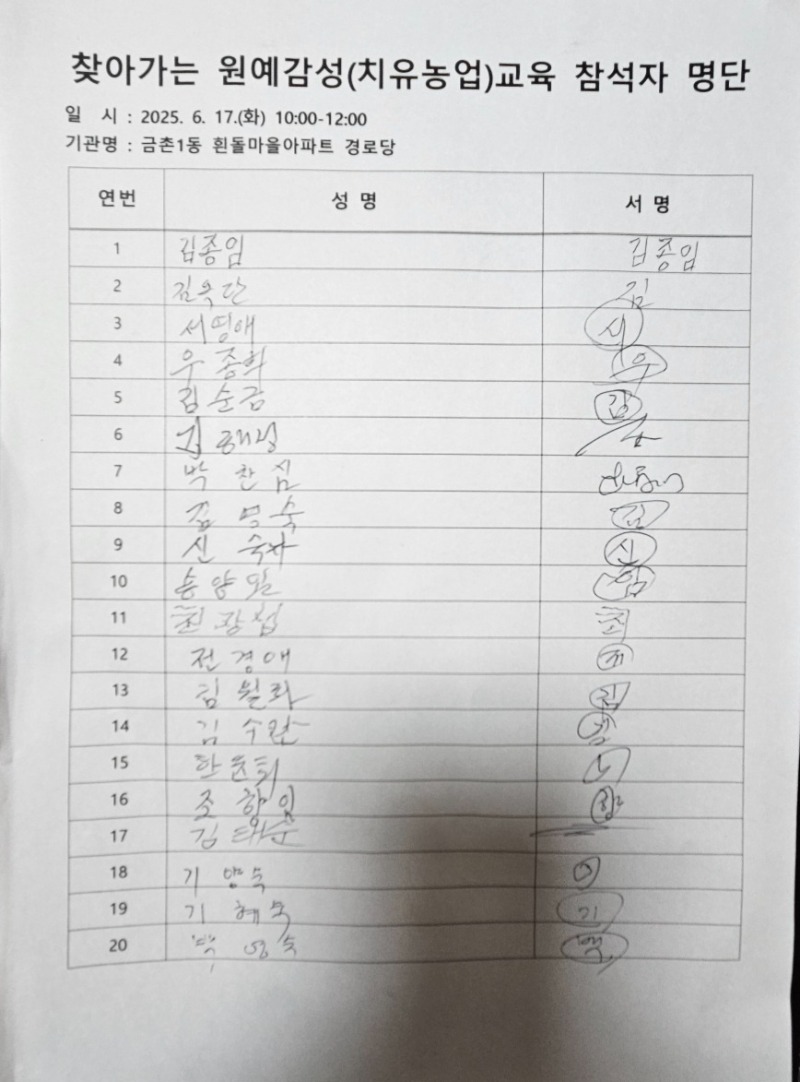 찾아가는 원예감성(치유농업)교육 참석자 명단
일 시 : 2025. 6. 17.(화) 10:00-12:00
기관명 : 금촌1동 흰돌마을아파트 경로당
연번 성 명 서 명
1 김종임 김종임
2 김옥단 김
3 서명애 서
4 우종희 우
5 김순금 김
6 김
7 박찬심
8 김영숙 김
9 신숙자 신
10
11 최장섭 최
12 전경애 전
13 김월화 김
14 김수란
15 한문희
16 조항임
17 김태순
18 기양숙
19 기혜숙 기
20 백영숙 백